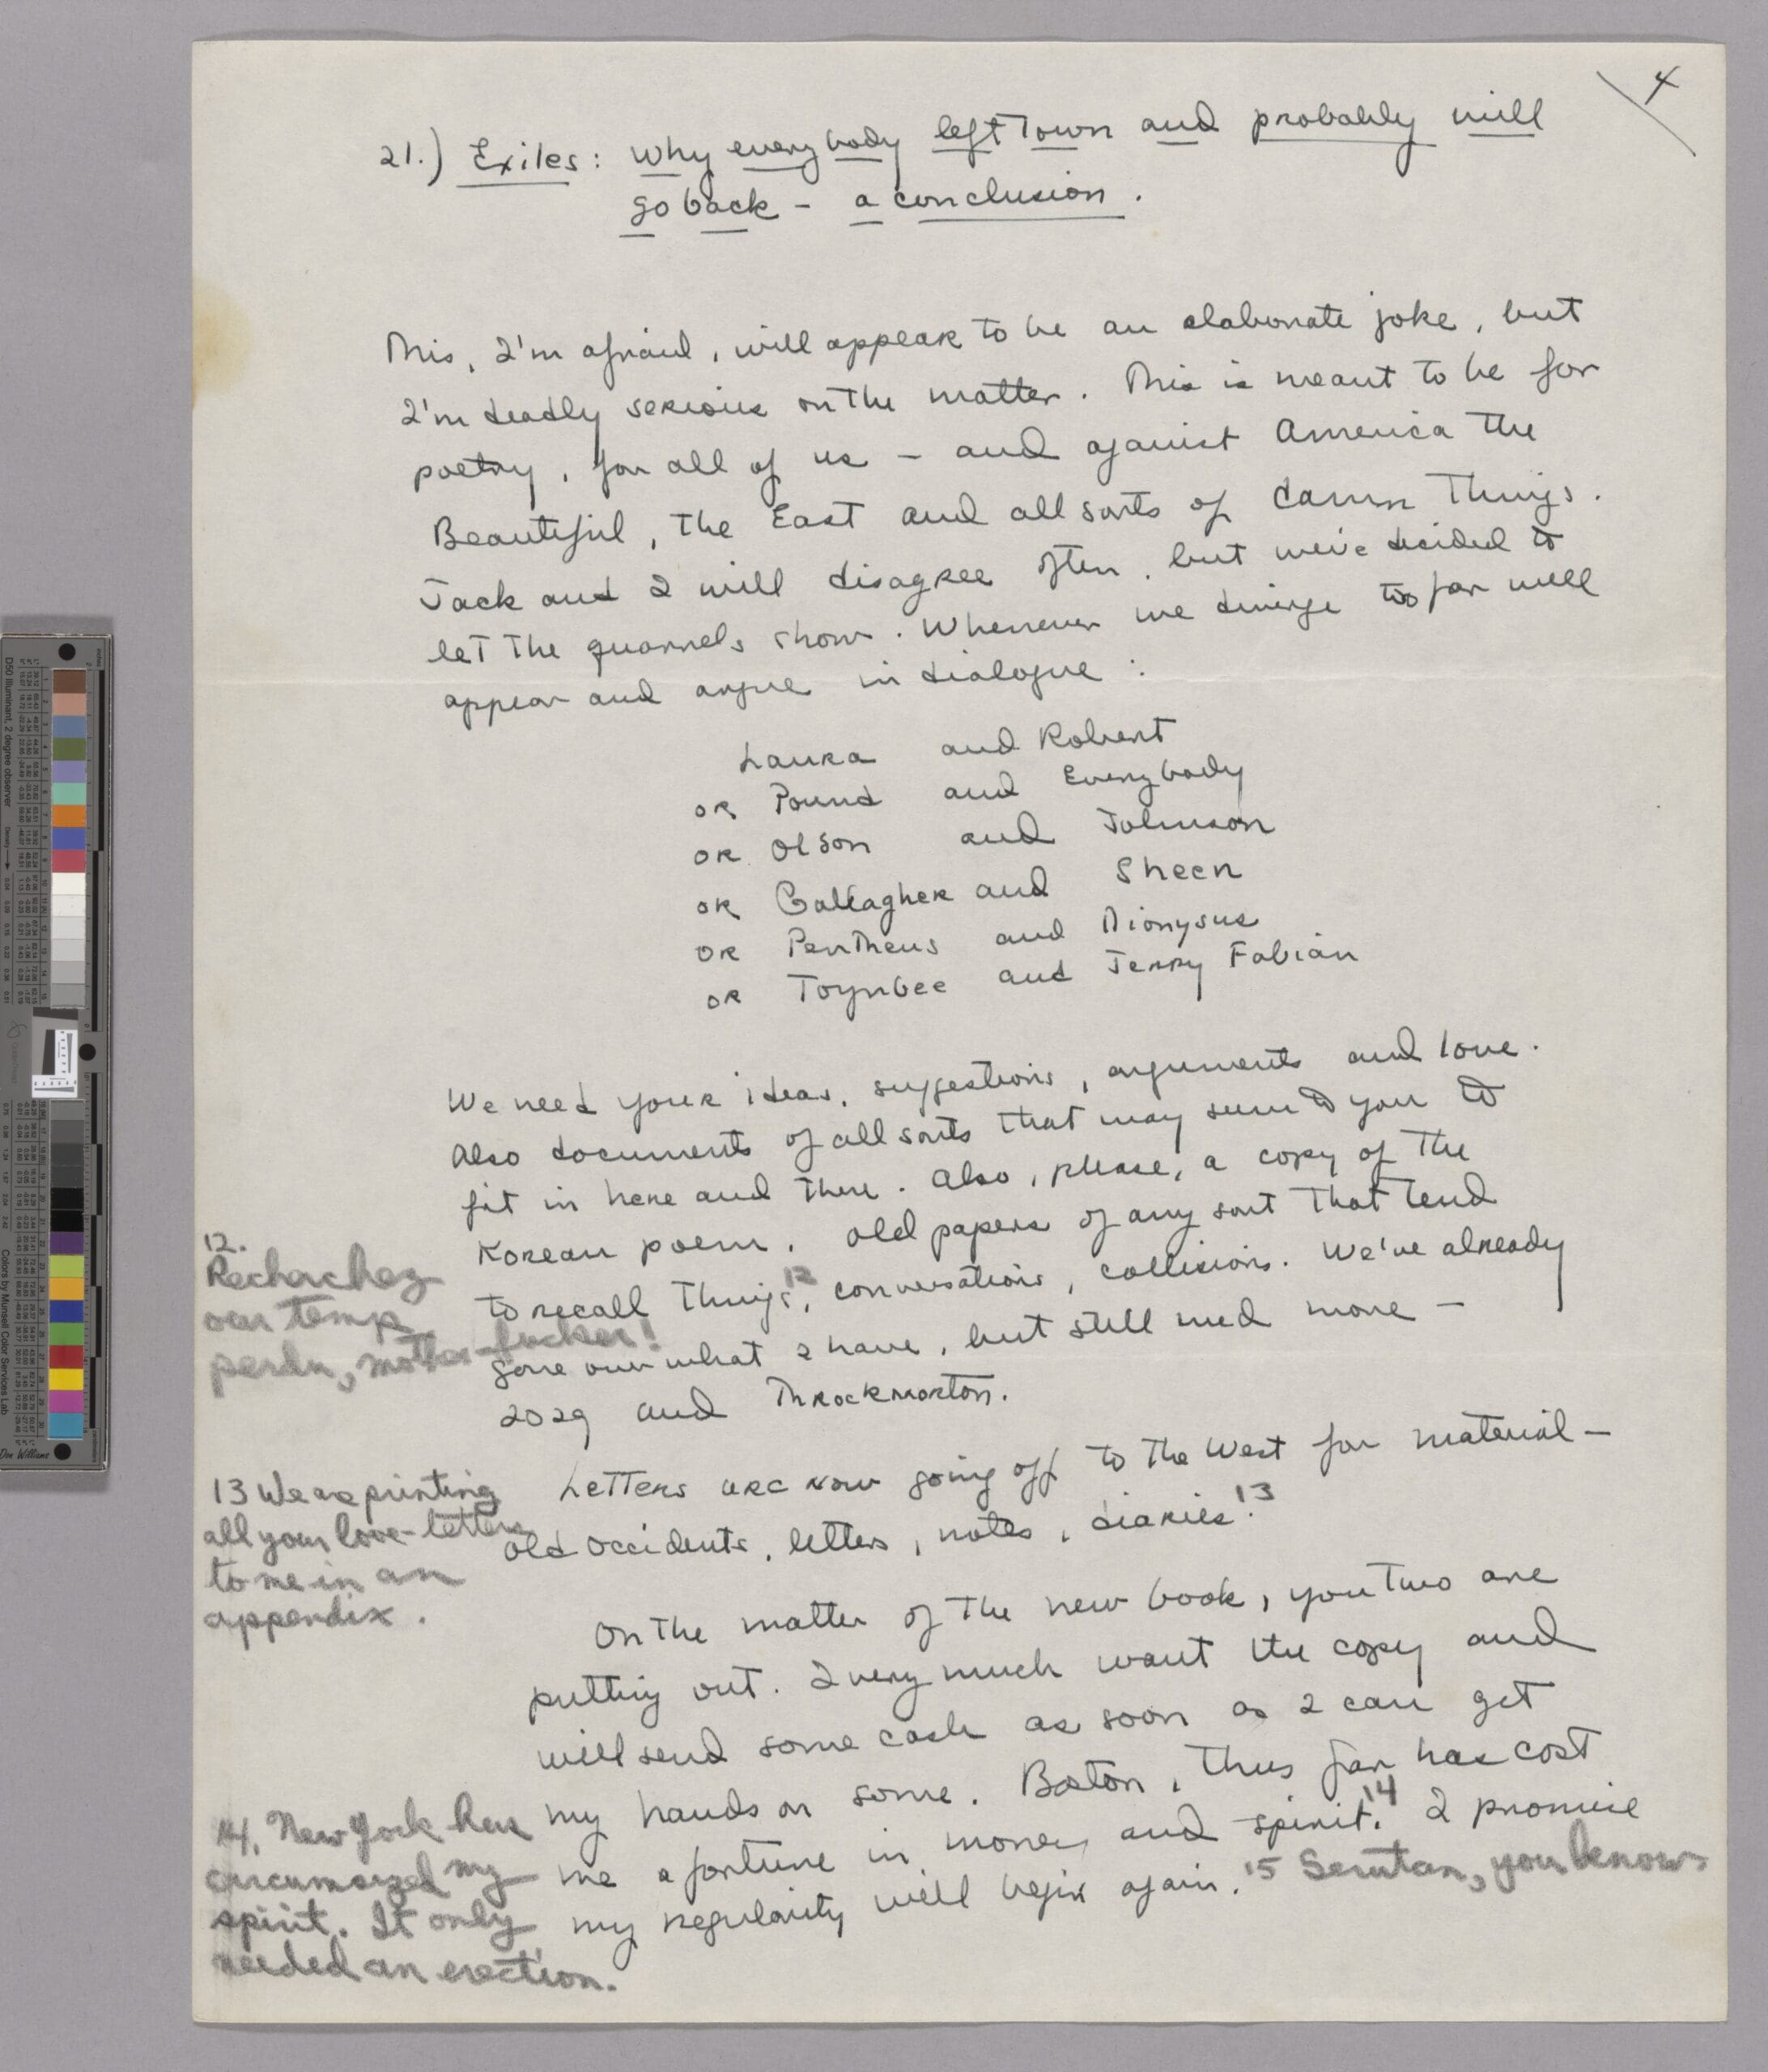 4
21.) Exiles: Why everybody left Town and probably will
go back - a conclusion.
This, I'm afraid, will appear to be an elaborate joke, but
I'm deadly serious on the matter. This is meant to be for
poetry, for all of us - and against America the
Beautiful, the East and all sorts of damn Things.
Jack and I will disagree often, but we've decided to
let the quarrels show. Whenever we diverge too far we'll
appear and argue in dialogue:
Laura and Robert
or Pound and Everybody
or Olson and Johnson
or Gallagher and Sheen
or Pentheus and Dionysus
or Toynbee and Jerry Fabian
We need your ideas, suggestions, arguments and love.
Also documents of all sorts that may seem to you to
fit in here and there. Also, please, a copy of the
Korean poem. Old papers of any sort that tend
to recall things,12 conversations, collisions. We've already
gone over what I have, but still need more -
2029 and Throckmorton.
12.
Recherchez
our temp
perdu, mother-fucker!
Letters are now going off to the West for material -
old occidents, letters, notes, diaries.13
13 We are printing
all your love-letters
to me in an
appendix.
On the matter of the new book, you two are
putting out. I very much want the copy and
will send some cash as soon as I can get
my hands on some. Boston, thus far has cost
me a fortune in money and spirit.14 I promise
my regularity will begin again.15 Serutan, you know
14. New York has
circumsized my
spirit. It only
needed an erection.